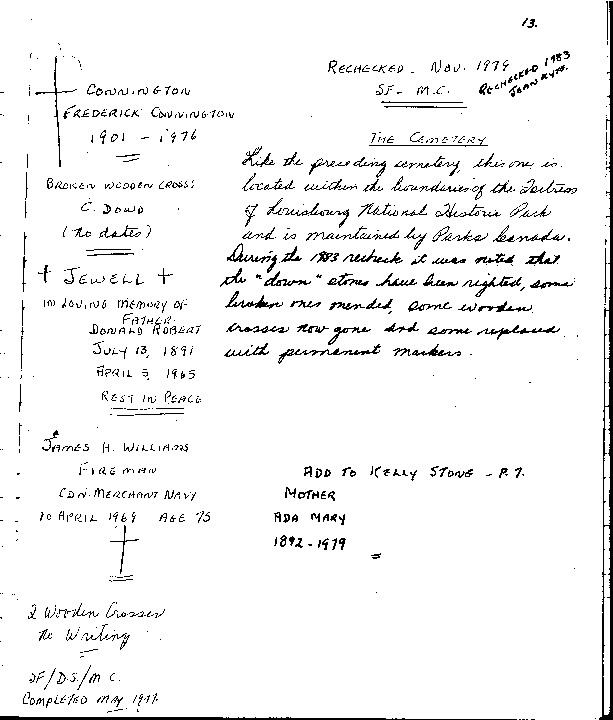 13.
CONNINGTON
FREDERICK CONNINGTON
1901 - 1976
BROKEN WOODEN CROSS:
C. DOWD
(no dates)
† JEWELL †
IN LOVING MEMORY OF
FATHER
DONALD ROBERT
JULY 13, 1891
APRIL 5, 1965
REST IN PEACE
JAMES H. WILLIAMS
FIREMAN
CDN. MERCHANT NAVY
20 APRIL 1969 AGE 75
2 Wooden Crosses
No Writing
SF/D.S./M.C.
COMPLETED MAY 1977
RECHECKED - NOV. 1979
SF - M.C.
RECHECKED 1983
JEAN KYTE.
THE CEMETERY
Like the preceding cemetery, this one is
located within the boundaries of the Fortress
of Louisbourg National Historic Park
and is maintained by Parks Canada.
During the 1983 recheck it was noted that
the "down" stones have been righted, some
broken ones mended, some wooden
crosses now gone and some replaced
with permanent markers.
ADD TO KELLY STONE - P. 7.
MOTHER
ADA MARY
1892 - 1979